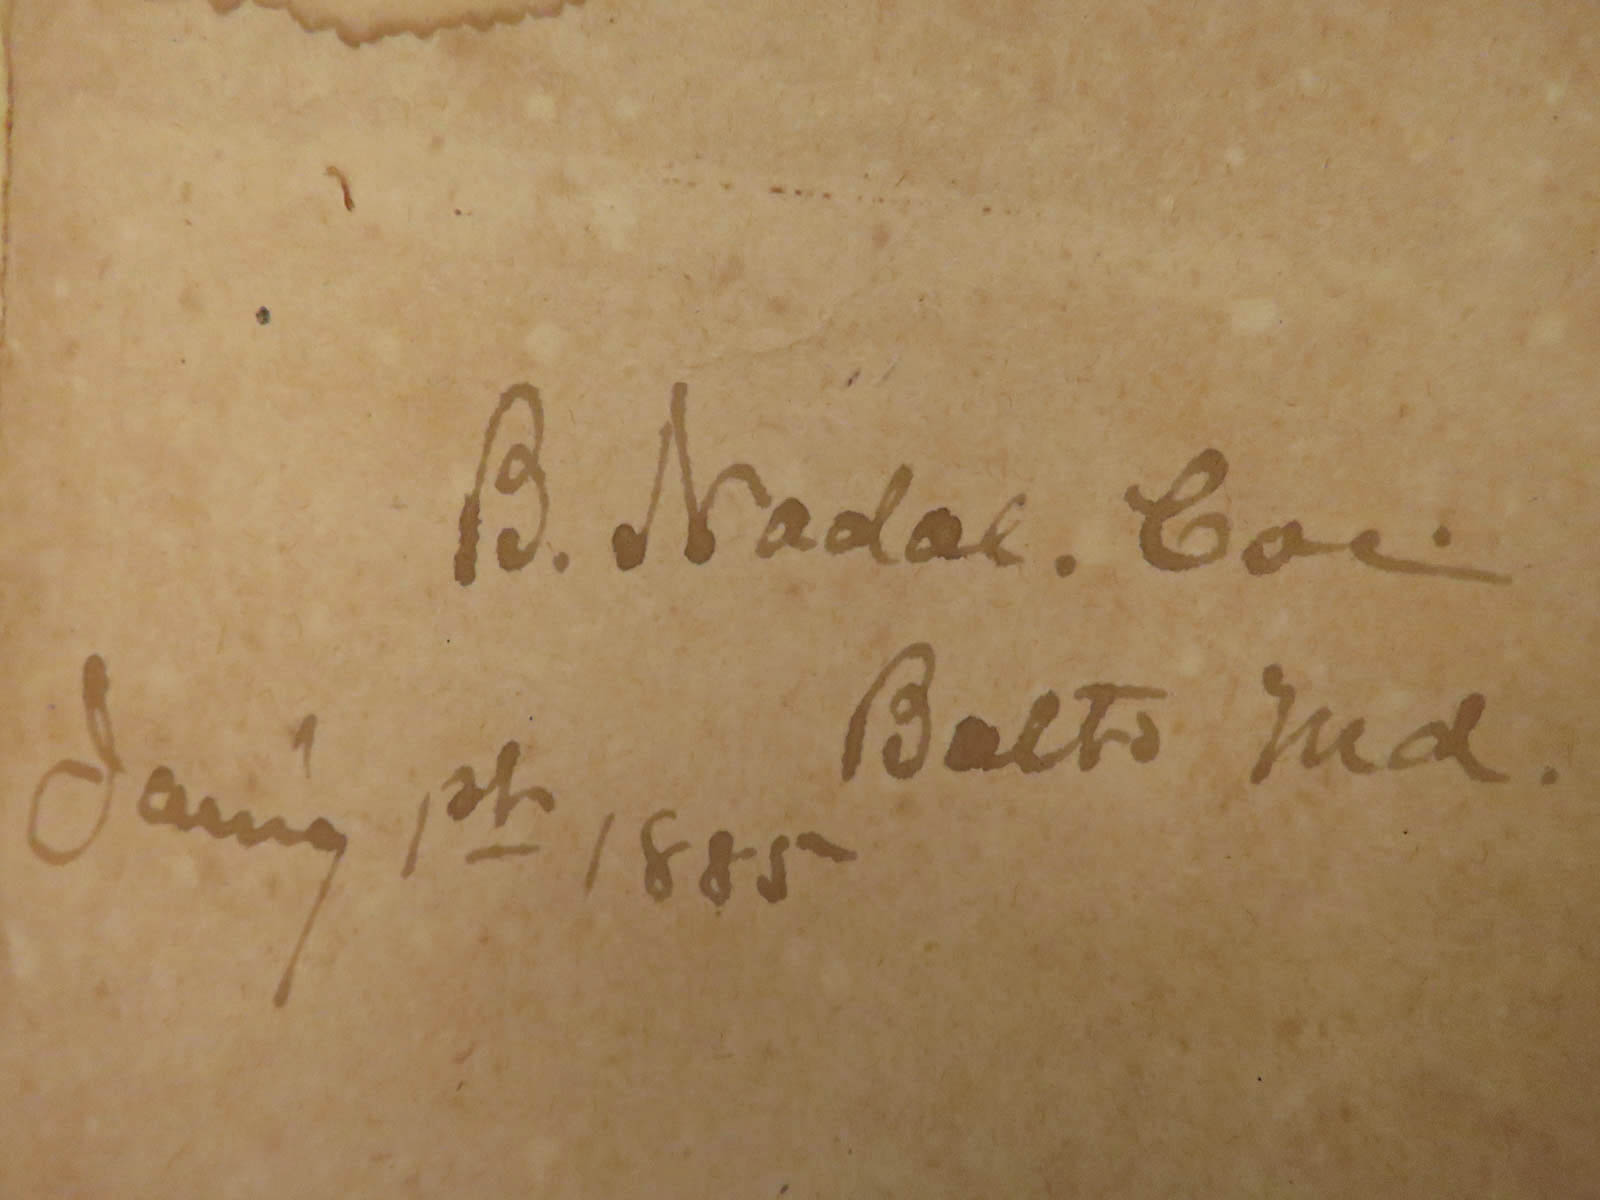 B. Nadal. Coe.
Balto Md.
Jan'y 1st 1885